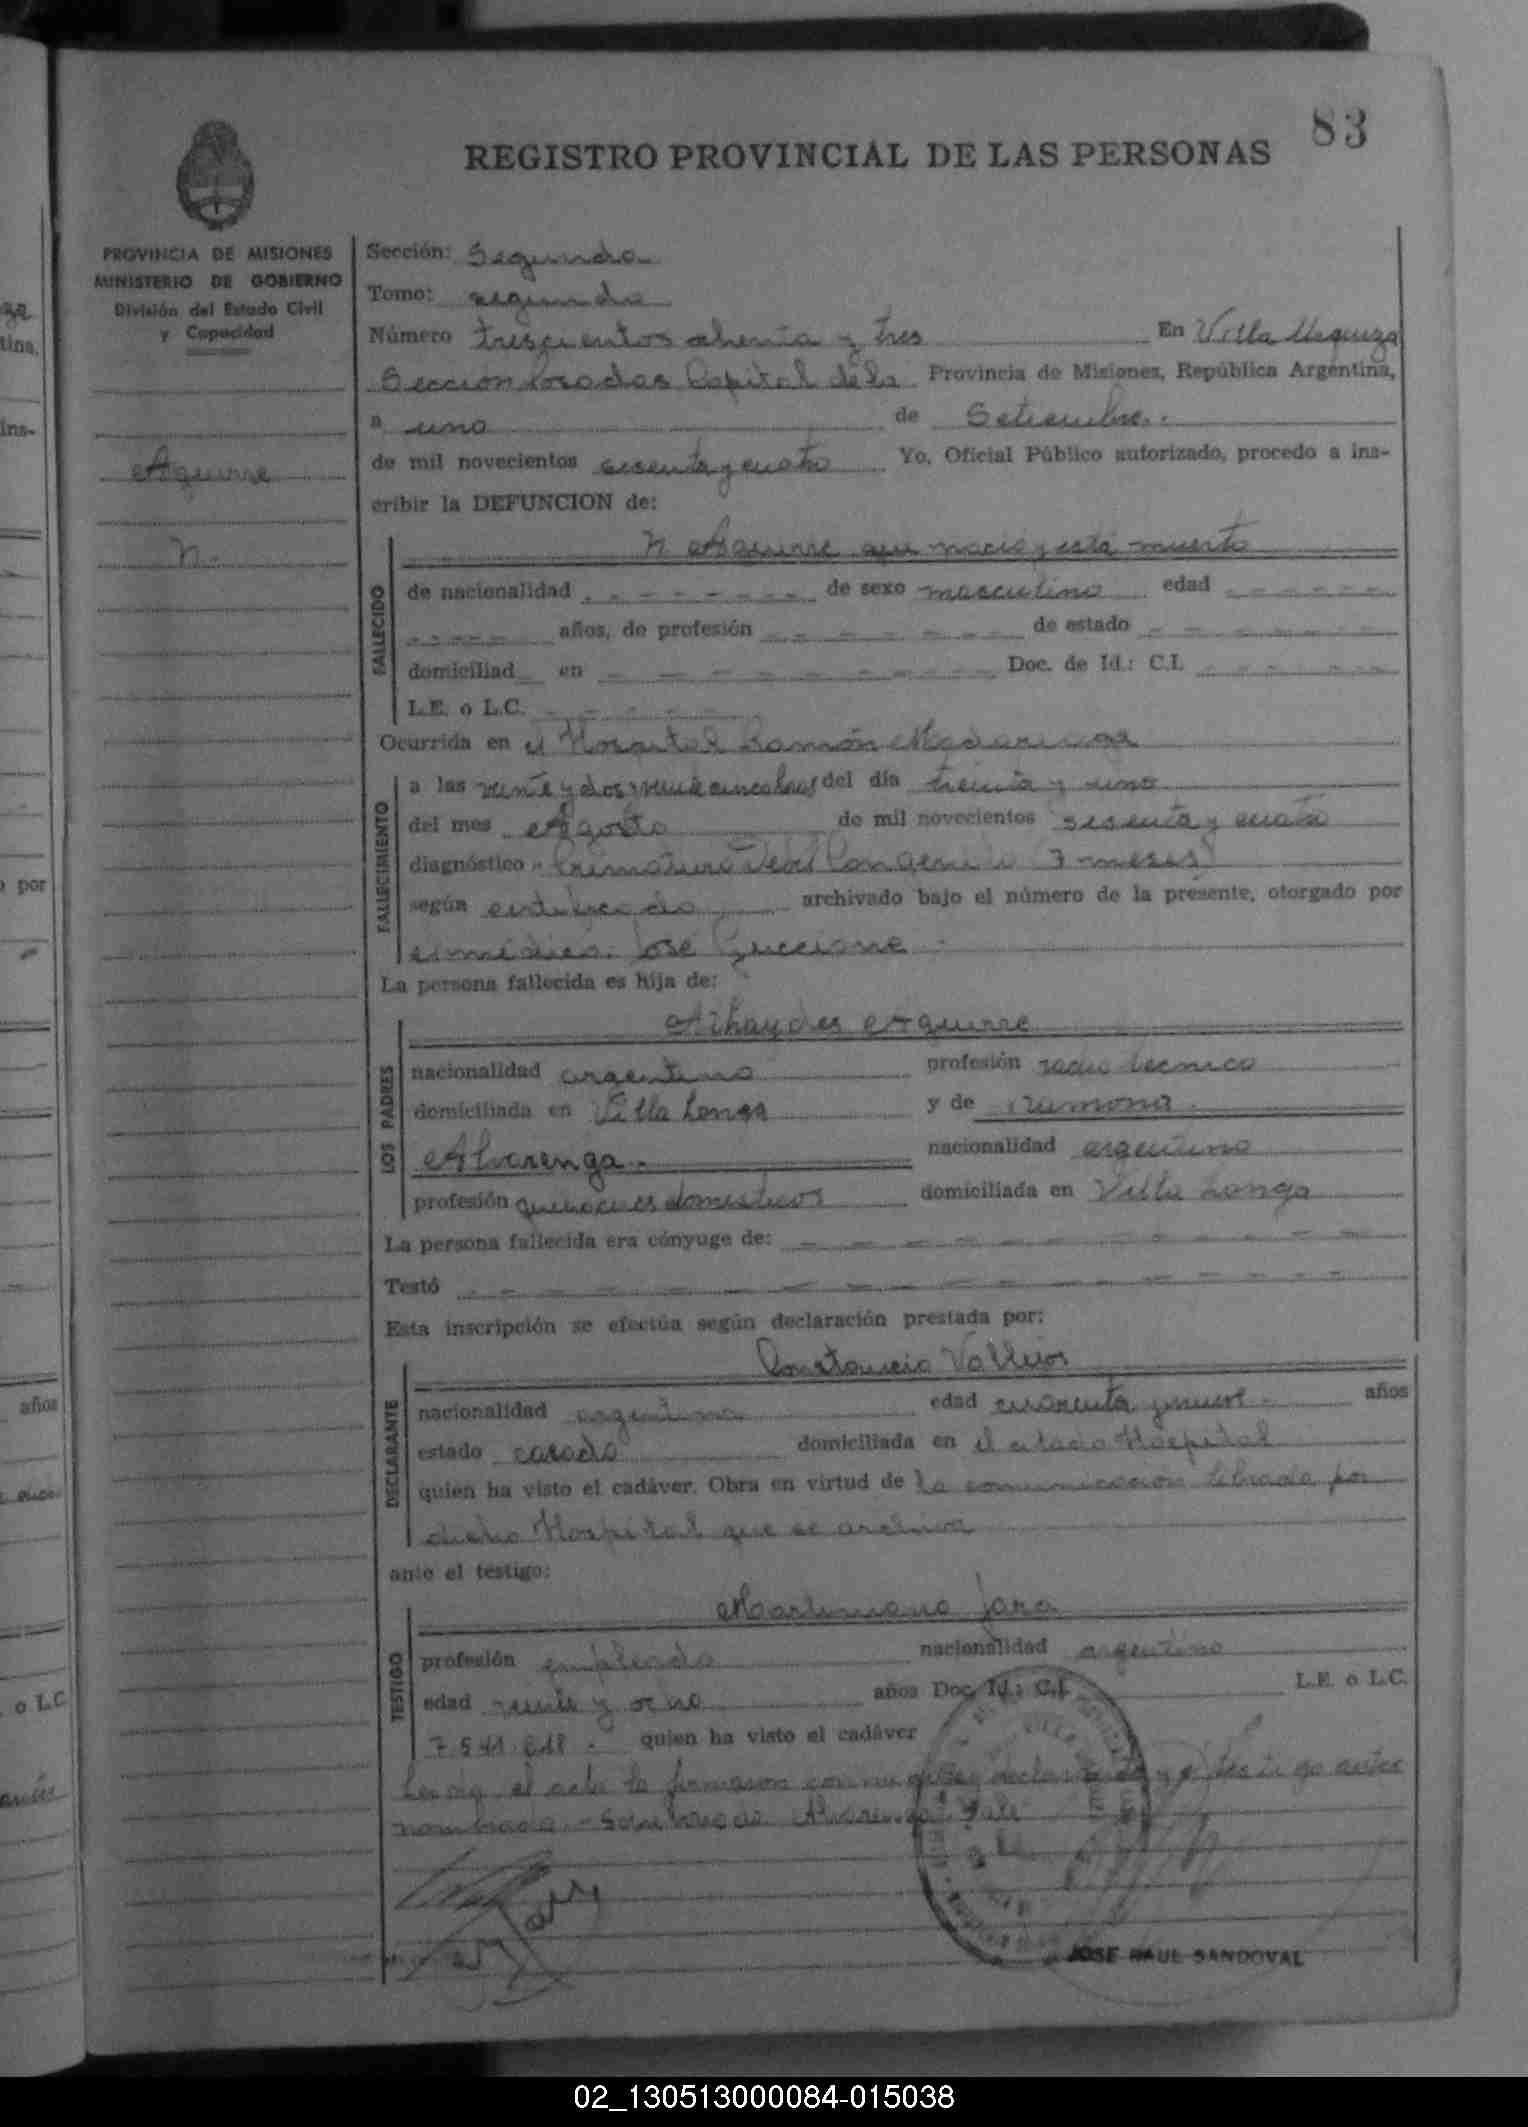 83
REGISTRO PROVINCIAL DE LAS PERSONAS
PROVINCIA DE MISIONES
MINISTERIO DE GOBIERNO
División del Estado Civil
y Capacidad
Aguirre
N.
Sección: Segunda
Tomo: segundo
Número trescientos ochenta y tres En Villa Urquiza
Sección Posadas Capital de la Provincia de Misiones, República Argentina,
a uno de Setiembre.
de mil novecientos sesenta y cuatro Yo, Oficial Público autorizado, procedo a ins-
cribir la DEFUNCION de:
N Aguirre que nacio y esta muerto
FALLECIDO
de nacionalidad - - - - - - - de sexo masculino edad - - - - - -
- - - - - años, de profesión - - - - - - de estado - - - - - -
domiciliad en - - - - - - - - - Doc. de Id.: C.I. - - - - - -
L.E. o L.C. - - - - -
Ocurrida en el Hospital Ramón Madariaga
FALLECIMIENTO
a las veinte y dos y veinte cinco horas del día treinta y uno
del mes Agosto de mil novecientos sesenta y cuatro
diagnóstico Prematuro Debil Congenito (7 meses)
según certificado archivado bajo el número de la presente, otorgado por
el médico: José Guccione
La persona fallecida es hija de:
LOS PADRES
Athaydes Aguirre
nacionalidad argentino profesión radio tecnico
domiciliada en Villa Longa y de Ramona
Alvarenga. nacionalidad argentino
profesión quehaceres domesticos domiciliada en Villa Longa
La persona fallecida era cónyuge de: - - - - - - - - - - -
Testó - - - - - - - - - - - - -
Esta inscripción se efectúa según declaración prestada por:
DECLARANTE
Constancio Vallejos
nacionalidad argentino edad cuarenta y nueve años
estado casado domiciliada en el citado Hospital
quien ha visto el cadáver. Obra en virtud de la comunicación librada por
dicho Hospital que se archiva
ante el testigo:
TESTIGO
Martimiano Jara
profesión empleado nacionalidad argentino
edad veinte y ocho años Doc. Id.: C.I. L.E. o L.C.
7.541.618. quien ha visto el cadáver
Leida el acta la firmaron conmigo el declarante y el testigo antes
nombrado - Sobre borrado Alvarenga Vale
JOSE RAUL SANDOVAL
02_130513000084-015038